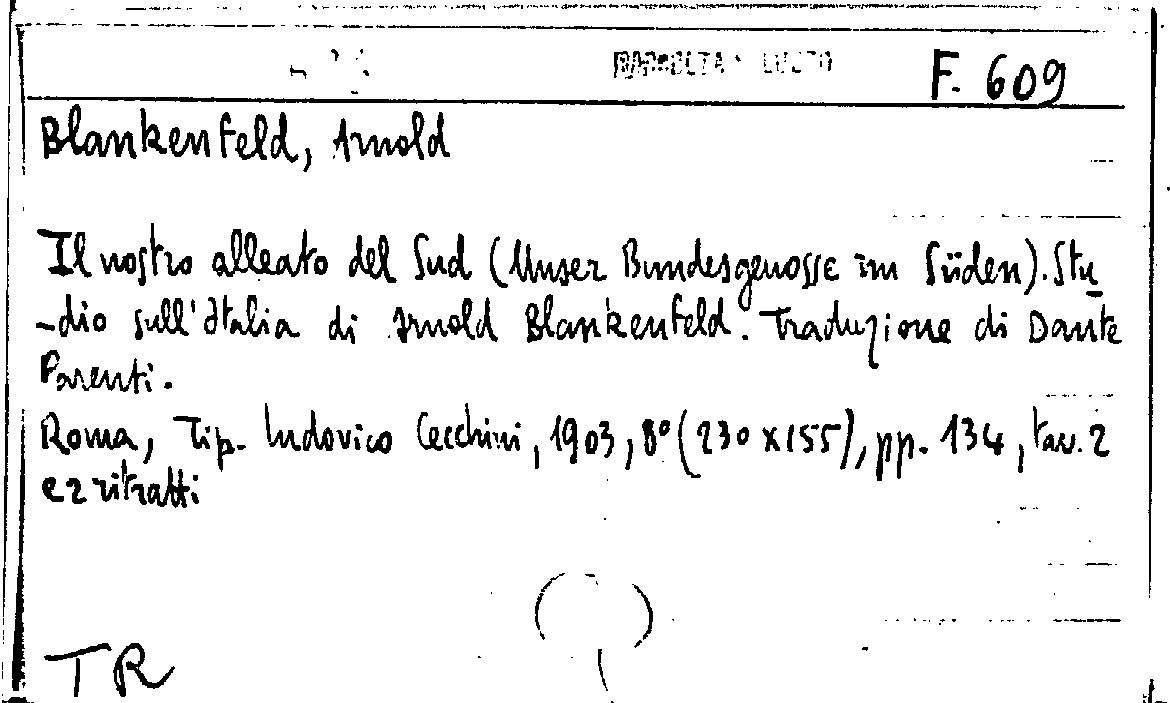 RACCOLTA LUZIO F. 609
Blankenfeld, Arnold
Il nostro alleato del Sud (Unser Bundesgenosse im Süden). Stu
-dio sull'Italia di Arnold Blankenfeld. Traduzione di Dante
Parenti.
Roma, Tip. Ludovico Cecchini, 1903, 8° (230 x 155), pp. 134, tav. 2
e 2 ritratti
TR